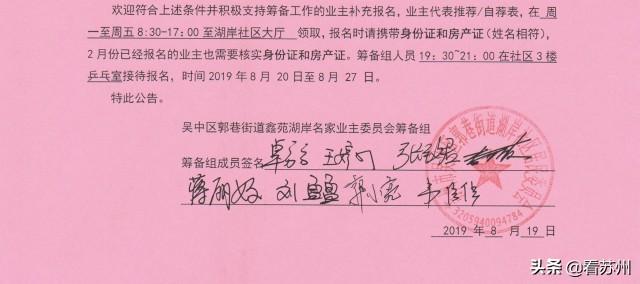 欢迎符合上述条件并积极支持筹备工作的业主补充报名，业主代表推荐/自荐表，在 周
一至周五 8:30-17:00 至湖岸社区大厅 领取，报名时请携带身份证和房产证（姓名相符），
2 月份已经报名的业主也需要核实身份证和房产证。筹备组人员 19:30~21:00 在社区 3 楼
乒乓室接待报名，时间 2019 年 8 月 20 日至 8 月 27 日。
特此公告。
吴中区郭巷街道鑫苑湖岸名家业主委员会筹备组
筹备组成员签名
蒋丽 刘孟孟
3205940094784
2019 年 8 月 19 日
头条 @看苏州